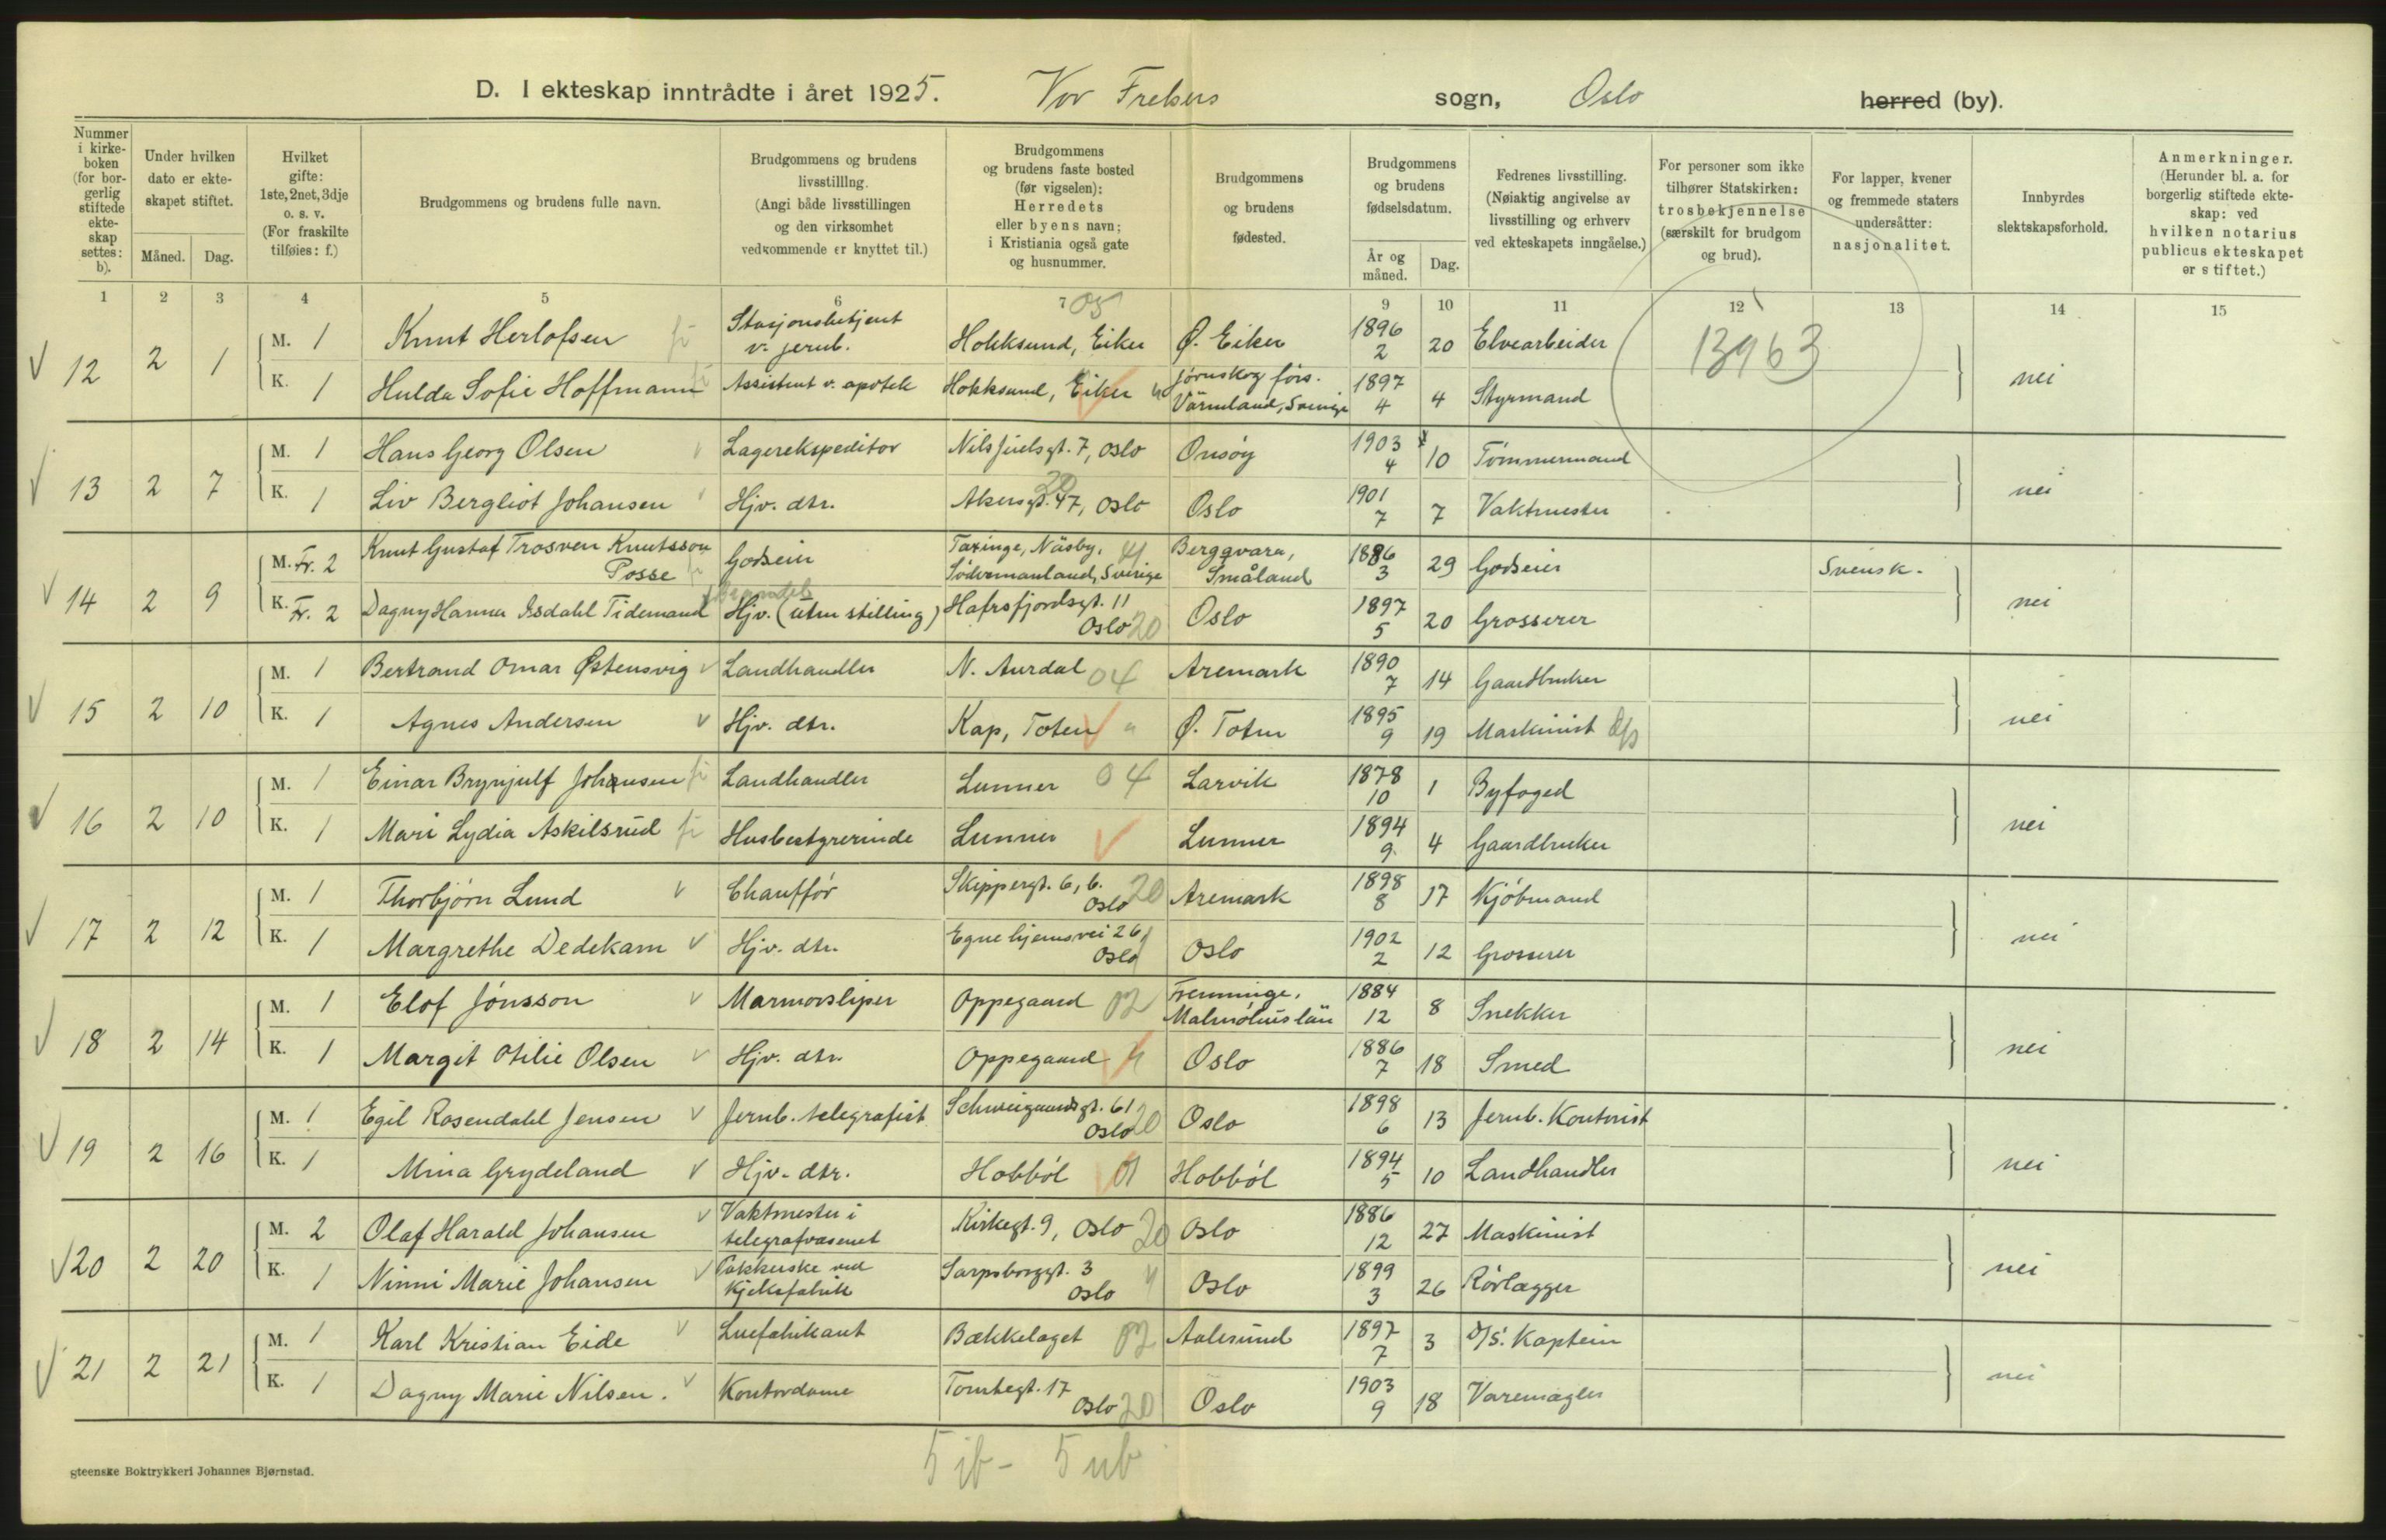 D. I ekteskap inntrådte i året 1925. Vor Frelsers sogn, Oslo herred (by).
Nummer i kirke-boken (for bor-gerlig stiftede ekte-skap settes: b).
Under hvilken dato er ekte-skapet stiftet.
Måned. Dag.
Hvilket gifte: 1ste, 2net, 3dje o. s. v. (For fraskilte tilføies: f.)
Brudgommens og brudens fulle navn.
Brudgommens og brudens livsstilling. (Angi både livsstillingen og den virksomhet vedkommende er knyttet til.)
Brudgommens og brudens faste bosted (før vigselen): Herredets eller byens navn; i Kristiania også gate og husnummer.
Brudgommens og brudens fødested.
Brudgommens og brudens fødselsdatum.
År og måned. Dag.
Fedrenes livsstilling. (Nøiaktig angivelse av livsstilling og erhverv ved ekteskapets inngåelse.)
For personer som ikke tilhører Statskirken: trosbekjennelse (særskilt for brudgom og brud).
For lapper, kvener og fremmede staters undersåtter: nasjonalitet.
Innbyrdes slektskapsforhold.
Anmerkninger. (Herunder bl. a. for borgerlig stiftede ekte-skap: ved hvilken notarius publicus ekteskapet er stiftet.)
1 2 3 4 5 6 7 9 10 11 12 13 14 15
05
13963
12 2 1 M. 1 Knut Herlofsen Stasjonsbetjent v. jernb. Hokksund, Eiker Ø. Eiker 1896 2 20 Elvearbeider nei
K. 1 Hulda Sofie Hoffmann Assistent v. apotek Hokksund, Eiker Järnskog förs. Värmland, Sverige 1897 4 4 Styrmand
13 2 7 M. 1 Hans Georg Olsen Lagerekspeditør Nils Juelsgt. 7, Oslo Onsøy 1903 4 10 Tømmermand nei
K. 1 Liv Bergliot Johansen Hjv. dtr. Akersgt. 47, Oslo 20 Oslo 1901 7 7 Vaktmester
14 2 9 M. Fr. 2 Knut Gustaf Trosven Knutsson Posse Godseier Taxinge, Näsby, Södermanland, Sverige Bergqvara, Småland 1886 3 29 Godseier Svensk. nei
K. Fr. 2 Dagny Hanna Isdahl Tidemand Hjv. (uten stilling) Hafrsfjordsgt. 11 Oslo 20 Oslo 1897 5 20 Grosserer
15 2 10 M. 1 Bertrand Omar Østensvig Landhandler N. Aurdal 04 Aremark 1890 7 14 Gaardbruker nei
K. 1 Agnes Andersen Hjv. dtr. Kap, Toten Ø. Toten 1895 9 19 Maskinist D/S
16 2 10 M. 1 Einar Brynjulf Johansen Landhandler Lunner 04 Larvik 1878 10 1 Byfoged nei
K. 1 Mari Lydia Askilsrud Husbestyrerinde Lunner Lunner 1894 9 4 Gaardbruker
17 2 12 M. 1 Thorbjørn Lund Chauffør Skippergt. 6, b. Oslo 20 Aremark 1898 8 17 Kjøbmand nei
K. 1 Margrethe Dedekam Hjv. dtr. Egne hjemsvei 26, Oslo Oslo 1902 2 12 Grosserer
18 2 14 M. 1 Elof Jönsson Marmorsliper Oppegaard 02 Fremminge, Malmöhus län 1884 12 8 Snekker nei
K. 1 Margit Otilie Olsen Hjv. dtr. Oppegaard Oslo 1886 7 18 Smed
19 2 16 M. 1 Egil Rosendahl Jensen Jernb. telegrafist Schweigaardsgt. 61 Oslo 20 Oslo 1898 6 13 Jernb. Kontorist nei
K. 1 Mina Grydeland Hjv. dtr. Hobbøl 01 Hobbøl 1894 5 10 Landhandler
20 2 20 M. 2 Olaf Harald Johansen Vaktmester i telegrafvæsenet Kirkegt. 9, Oslo 20 Oslo 1886 12 27 Maskinist nei
K. 1 Ninni Marie Johansen Pakkerske ved Kjeksfabrik Sarpsborggt. 3 Oslo Oslo 1899 3 26 Rørlægger
21 2 21 M. 1 Karl Kristian Eide Luefabrikant Bækkelaget 02 Aalesund 1897 7 3 D/S. Kaptein nei
K. 1 Dagny Marie Nilsen. Kontordame Tomtegt. 17 Oslo 20 Oslo 1903 9 18 Varemægler
5 ib - 5 ub
gteenske Boktrykkeri Johannes Bjørnstad.